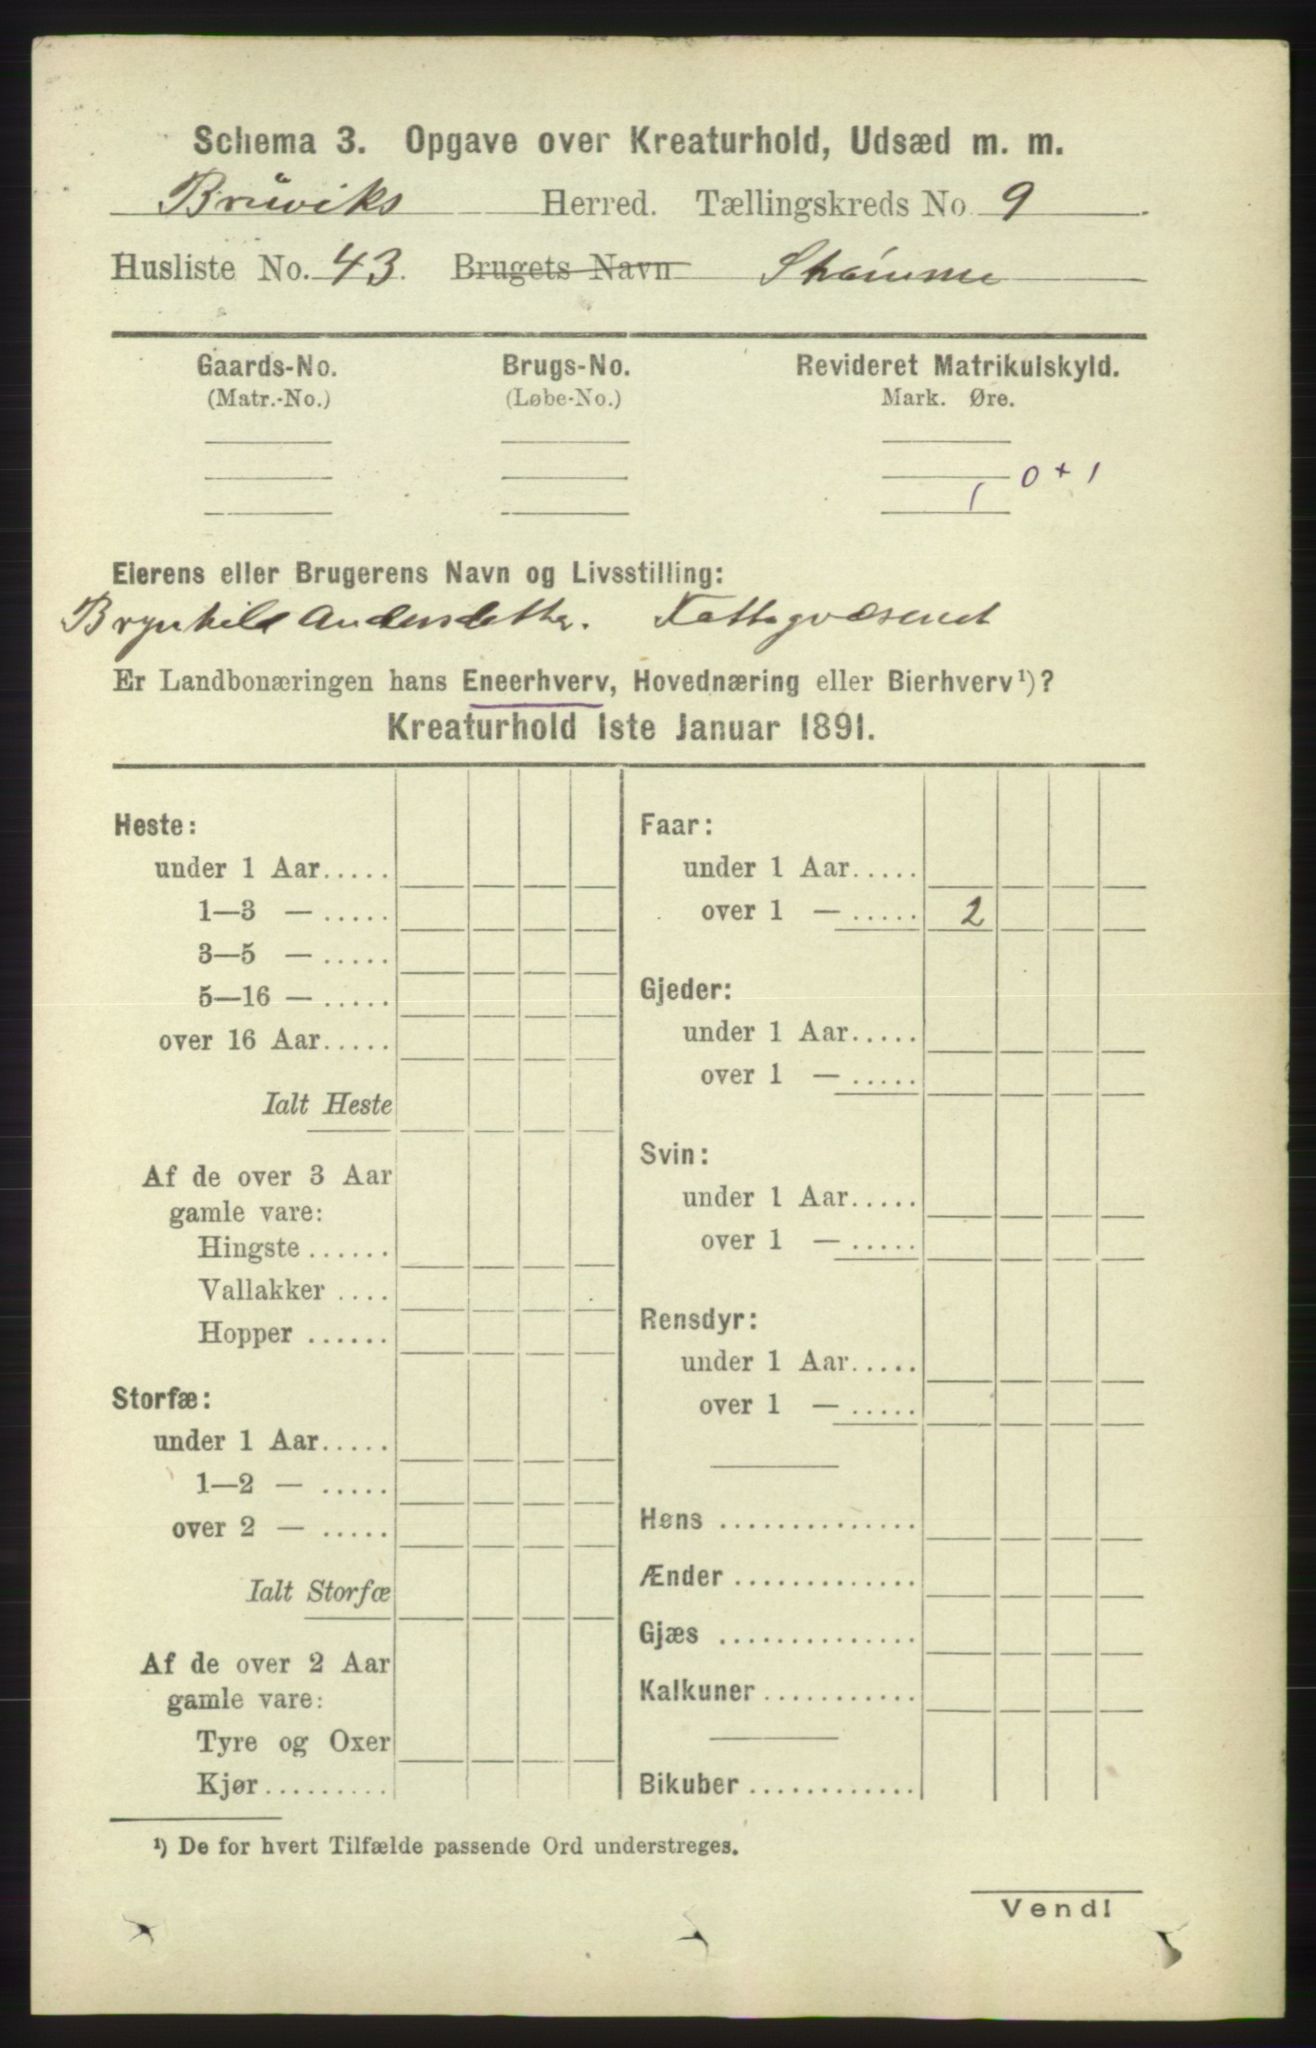 Schema 3. Opgave over Kreaturhold, Udsæd m. m.
Bruviks Herred. Tællingskreds No. 9
Husliste No. 43. Brugets Navn
Gaards-No. Brugs-No. Revideret Matrikulskyld.
(Matr.-No.) (Løbe-No.) Mark. Øre.
0 + 1
1
Eierens eller Brugerens Navn og Livsstilling:
Brynhild Andersdatter. Fattigvæsenet
Er Landbonæringen hans Eneerhverv, Hovednæring eller Bierhverv ¹)?
Kreaturhold 1ste Januar 1891.
Heste:
under 1 Aar.....
1—3 — .....
3—5 — .....
5—16 — .....
over 16 Aar.....
Ialt Heste
Af de over 3 Aar
gamle vare:
Hingste ......
Vallakker ....
Hopper ......
Storfæ:
under 1 Aar.....
1—2 — .....
over 2 — .....
Ialt Storfæ
Af de over 2 Aar
gamle vare:
Tyre og Oxer
Kjør.........
Faar:
under 1 Aar.....
over 1 — ..... 2
Gjeder:
under 1 Aar.....
over 1 — .....
Svin:
under 1 Aar.....
over 1 — .....
Rensdyr:
under 1 Aar.....
over 1 — .....
Høns ..............
Ænder .............
Gjæs ..............
Kalkuner...........
Bikuber ............
¹) De for hvert Tilfælde passende Ord understreges.
Vend!